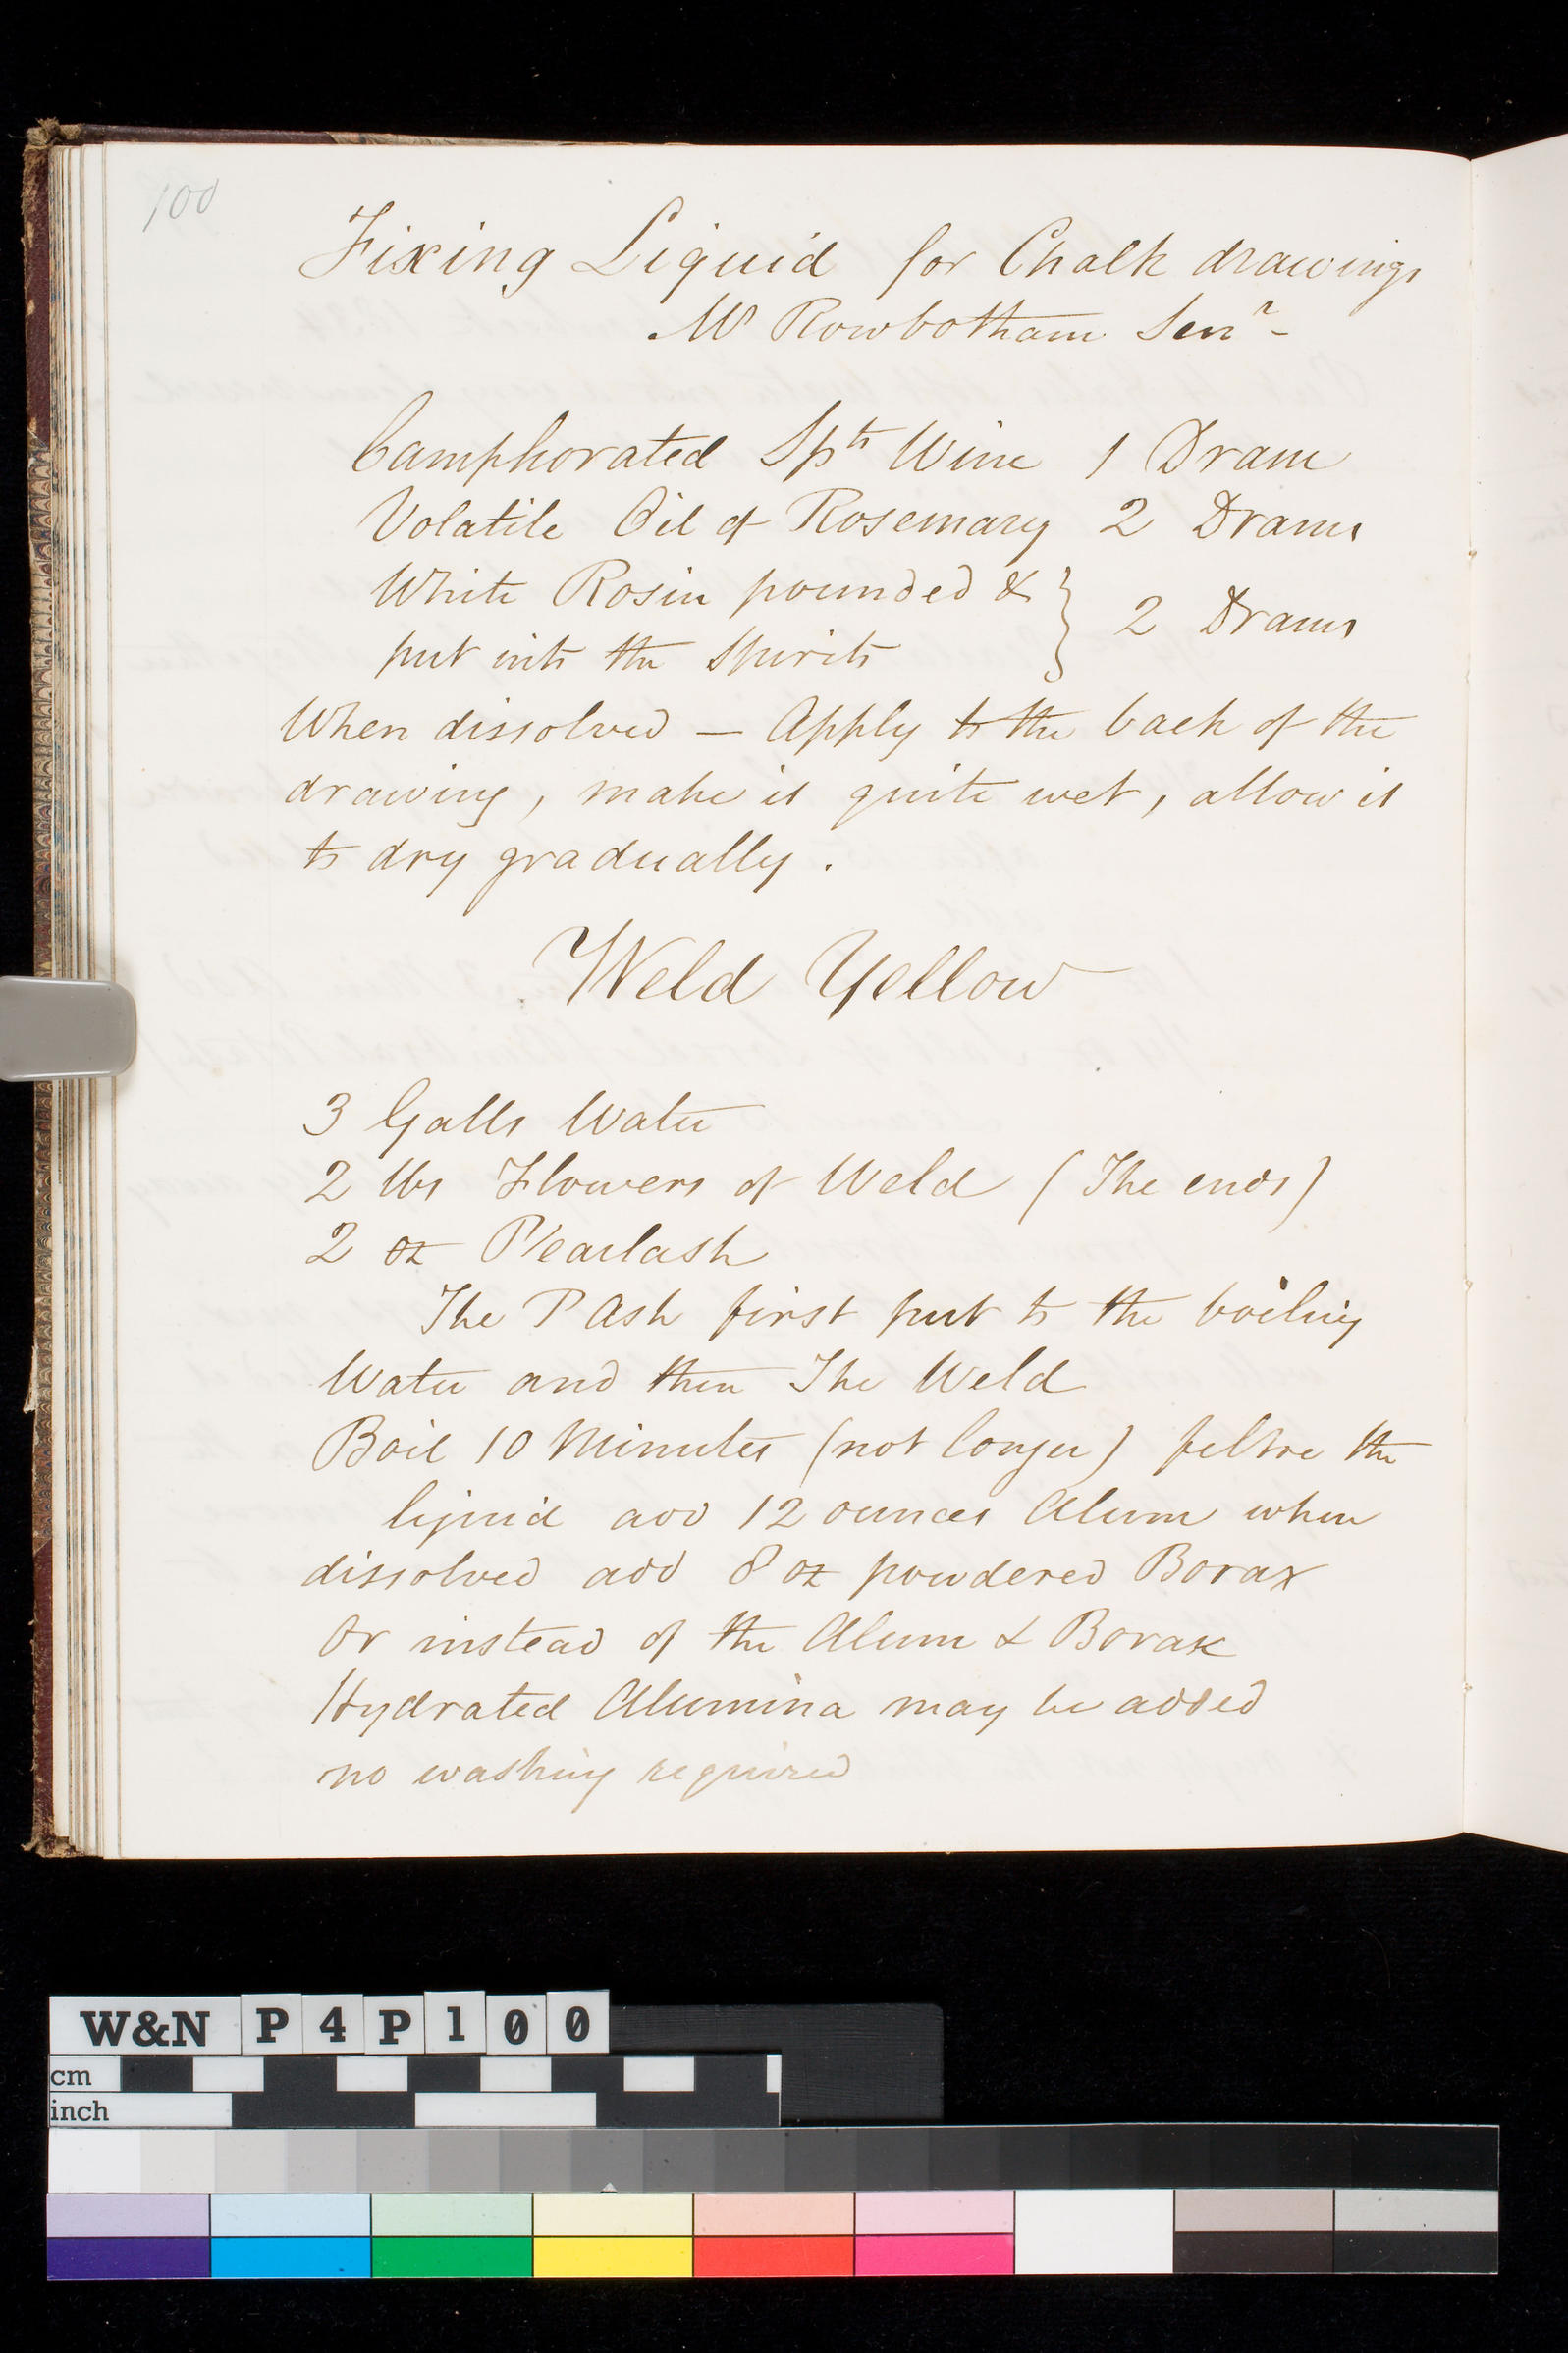 100
Fixing Liquid for Chalk drawings
Mr Rowbotham Senr -
Camphorated Spts Wine 1 Dram
Volatile Oil of Rosemary 2 Drams
White Rosin pounded & } 2 Drams
put into the Spirits
When dissolved — Apply to the back of the
drawing, make it quite wet, allow it
to dry gradually.
Weld Yellow
3 Galls Water
2 lbs Flowers of Weld (The ends)
2 oz P/earlash
The P Ash first put to the boiling
Water and then The Weld
Boil 10 Minutes (not longer) filtre the
liquid add 12 ounces Alum when
dissolved add 8 oz powdered Borax
Or instead of the Alum & Borax
Hydrated Alumina may be added
no washing required
W&N P4P100
cm
inch